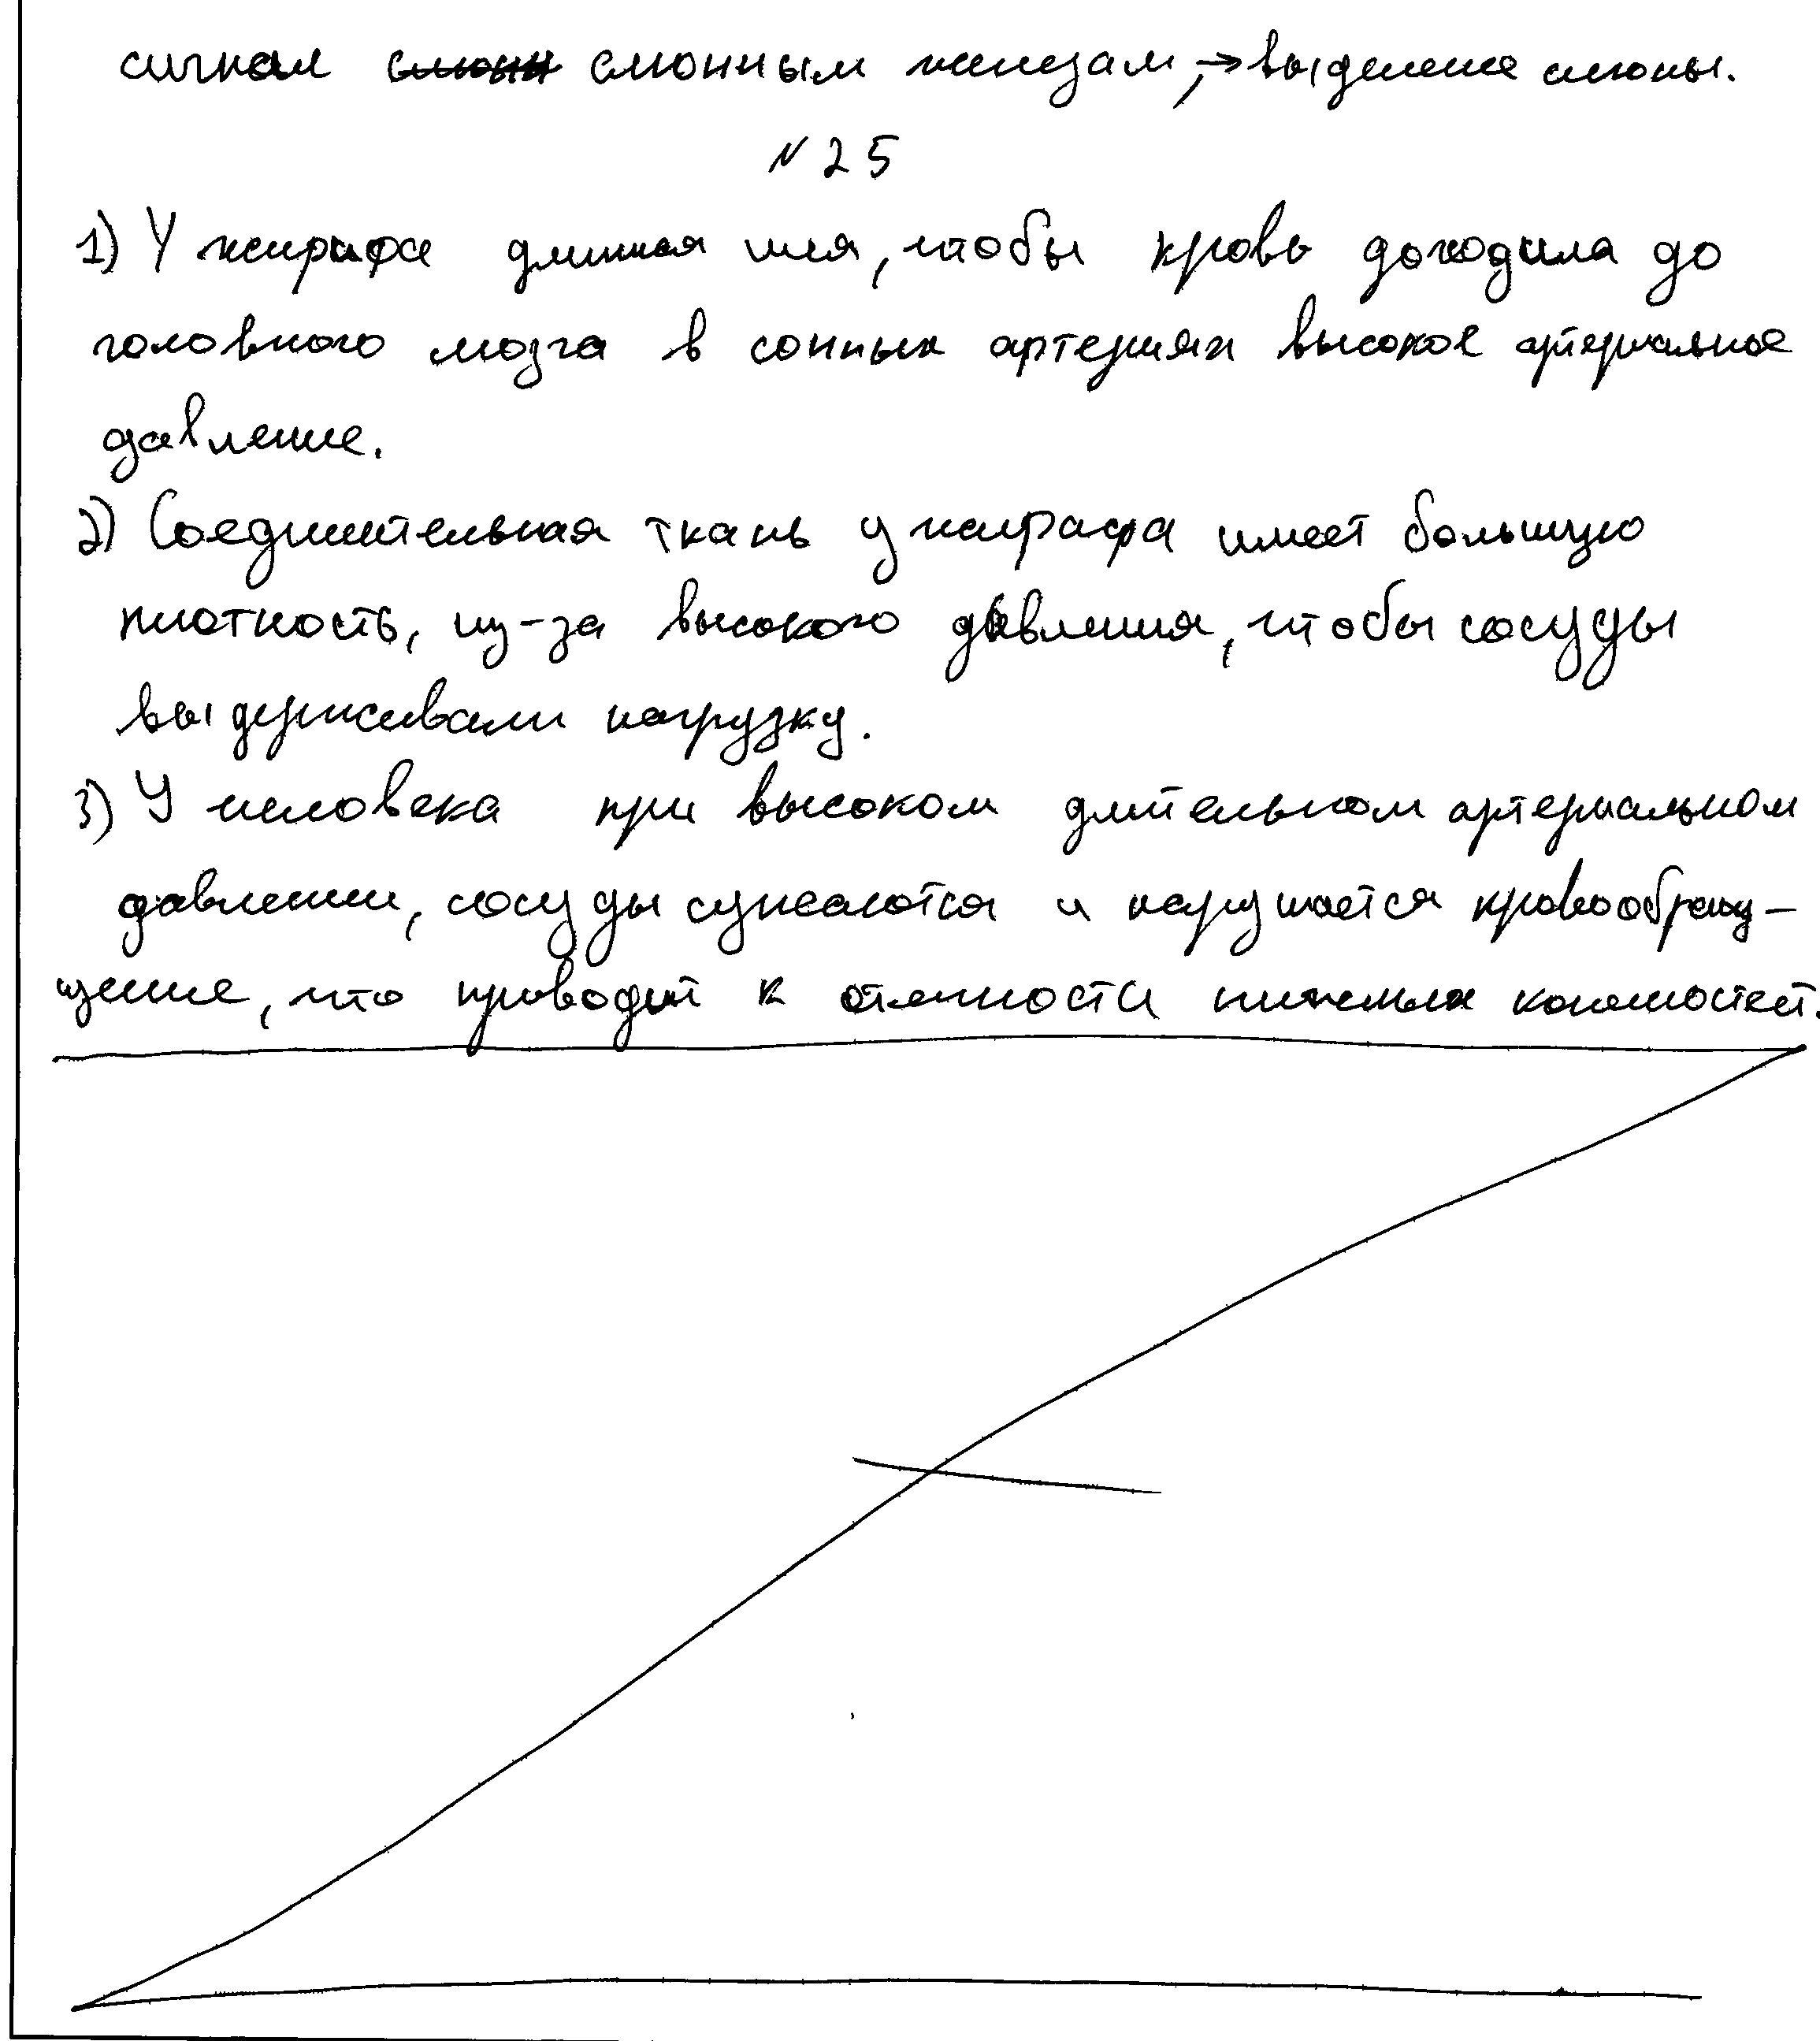 сигнал слюнным железам, → выделение слюны.
N 25
1) У жирафа длинная шея, чтобы кровь доходила до
головного мозга в сонных артериях высокое артериальное
давление.
2) Соединительная ткань у жирафа имеет большую
плотность, из-за высокого давления, чтобы сосуды
выдерживали нагрузку.
3) У человека при высоком длительном артериальном
давлении, сосуды сужаются и нарушается кровообращ-
щение, что проводит к отечности нижних конечностей.